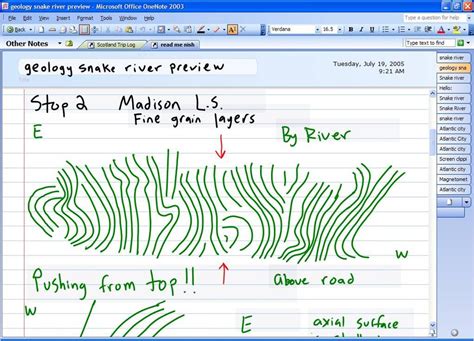 geology snake river preview - Microsoft Office OneNote 2003
File Edit View Insert Format Tools Table Window Help
Type a question for help
Back
Verdana
16.5
B
Other Notes
Scotland Trip Log
read me nish
Type text to find
geology snake river preview
Tuesday, July 19, 2005
9:21 AM
snake river
geology sna
Hello:
snake river
Snake River
snake river
Atlantic city
Atlantic City
Atlantic city
Screen clippi
Atlantic city
Magnetomet
Atlantic city
Stop 2 Madison L.S.
Fine grain layers
E
By River
W
Pushing from top!!
Above road
W
E
axial surface